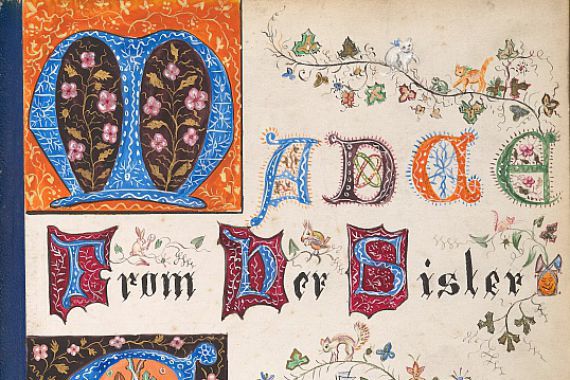 MADGE
From Her Sister